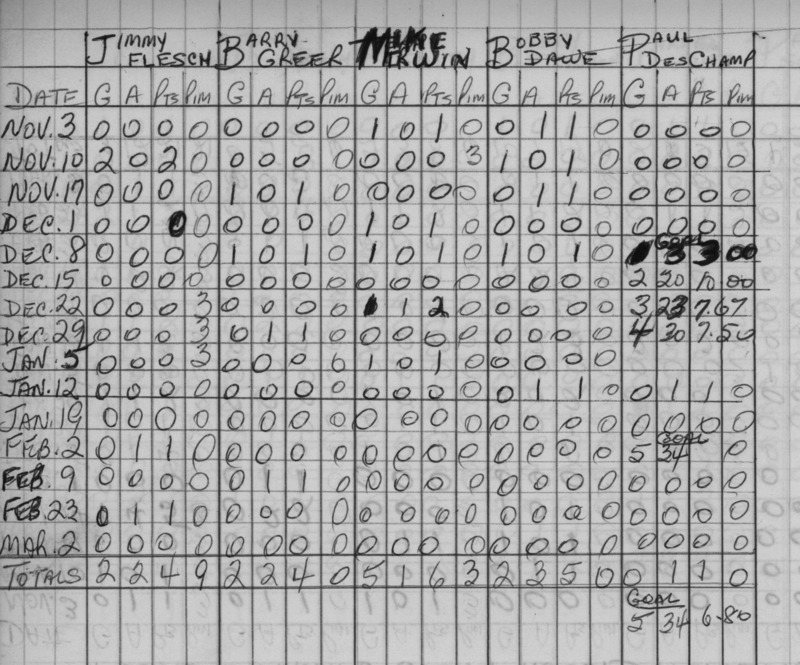 JIMMY FLESCH BARRY GREER MIKE ERWIN BOBBY DAWE PAUL DESCHAMP
DATE G A PTS PIM G A PTS PIM G A PTS PIM G A PTS PIM G A PTS PIM
NOV. 3 0 0 0 0 0 0 0 0 1 0 1 0 0 1 1 0 0 0 0 0
NOV. 10 2 0 2 0 0 0 0 0 0 0 0 3 1 0 1 0 0 0 0 0
NOV. 17 0 0 0 0 1 0 1 0 0 0 0 0 0 1 1 0 0 0 0 0
DEC. 1 0 0 0 0 0 0 0 0 1 0 1 0 0 0 0 0 0 0 0 0
GOAL
DEC. 8 0 0 0 0 1 0 1 0 1 0 1 0 1 0 1 0 1 3 3 00
DEC. 15 0 0 0 0 0 0 0 0 0 0 0 0 0 0 0 0 2 20 10.00
DEC. 22 0 0 0 3 0 0 0 0 1 1 2 0 0 0 0 0 3 23 7.67
DEC. 29 0 0 0 3 0 1 1 0 0 0 0 0 0 0 0 0 4 30 7.50
JAN. 5 0 0 0 3 0 0 0 0 1 0 1 0 0 0 0 0
JAN. 12 0 0 0 0 0 0 0 0 0 0 0 0 0 1 1 0 0 1 1 0
JAN. 19 0 0 0 0 0 0 0 0 0 0 0 0 0 0 0 0 0 0 0 0
GOAL
FEB. 2 0 1 1 0 0 0 0 0 0 0 0 0 0 0 0 0 5 34 0
FEB. 9 0 0 0 0 0 1 1 0 0 0 0 0 0 0 0 0 0 0 0 0
FEB. 23 0 1 1 0 0 0 0 0 0 0 0 0 0 0 0 0 0 0 0 0
MAR. 2 0 0 0 0 0 0 0 0 0 0 0 0 0 0 0 0 0 0 0 0
TOTALS 2 2 4 9 2 2 4 0 5 1 6 3 2 3 5 0 0 1 1 0
GOAL
5 34 6.80